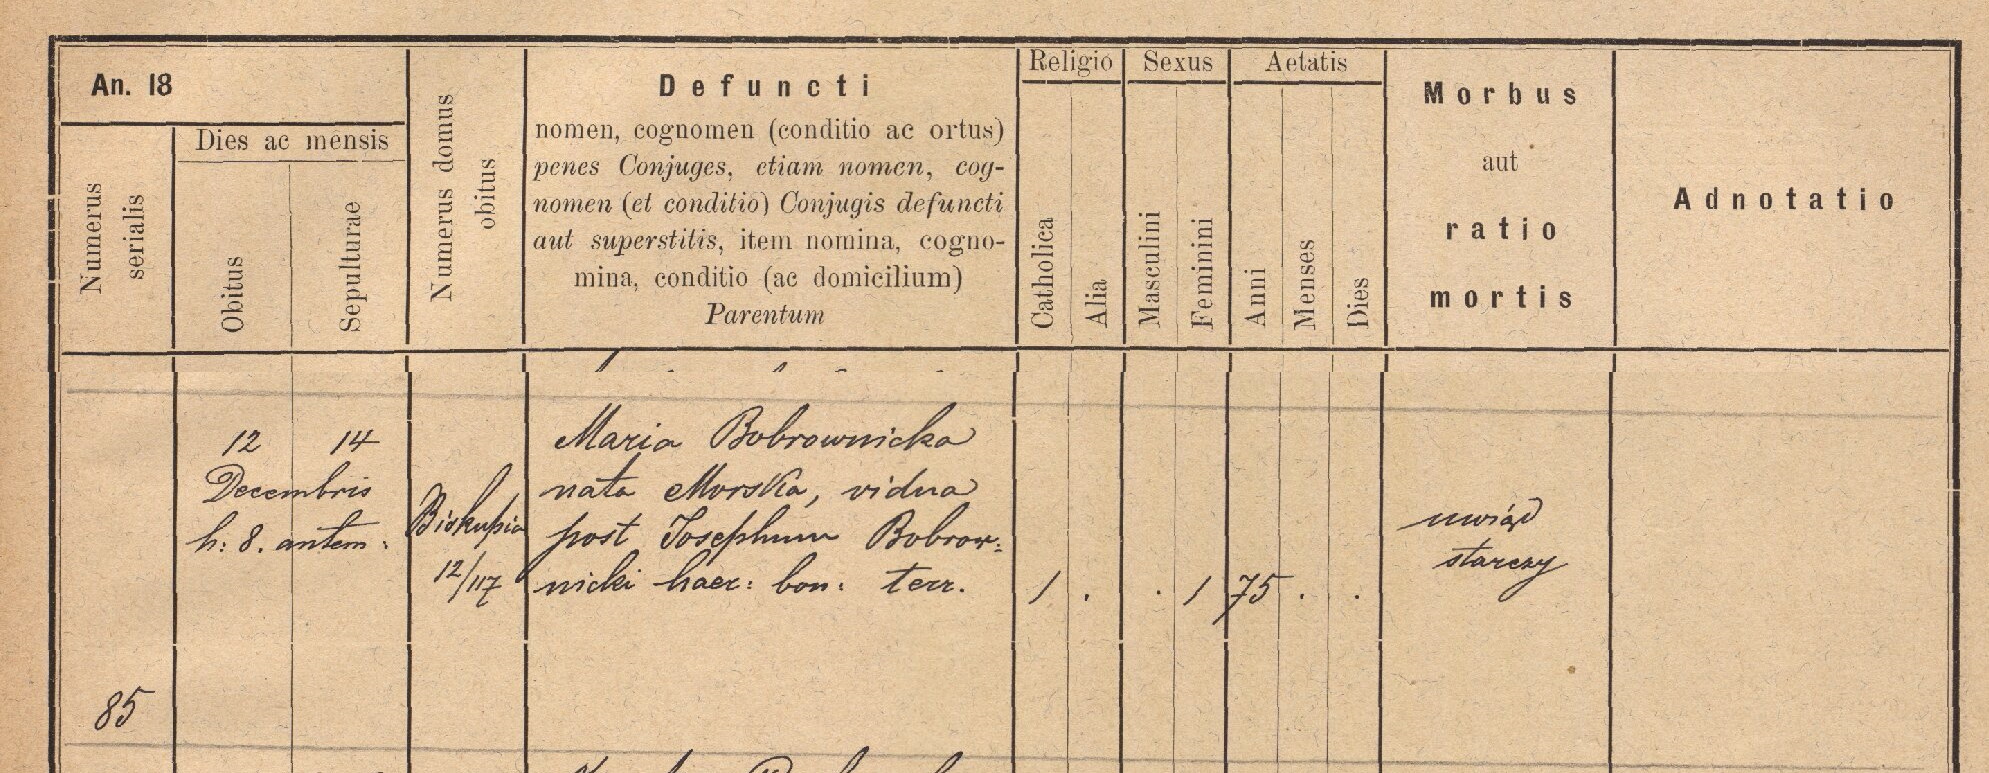 An. 18
Numerus serialis
Dies ac mensis
Obitus
Sepulturae
Numerus domus obitus
Defuncti
nomen, cognomen (conditio ac ortus)
penes Conjuges, etiam nomen, cog-
nomen (et conditio) Conjugis defuncti
aut superstitis, item nomina, cogno-
mina, conditio (ac domicilium)
Parentum
Religio
Catholica
Alia
Sexus
Masculini
Feminini
Aetatis
Anni
Menses
Dies
Morbus
aut
ratio
mortis
Adnotatio
12 14
Decembris
h: 8. antem:
Biskupia
12/117
Maria Bobrownicka
nata Morska, vidua
post Josephum Bobrow:
nicki haer: bon: terr.
1 . . 1 75 . .
uwiąd
starczy
85